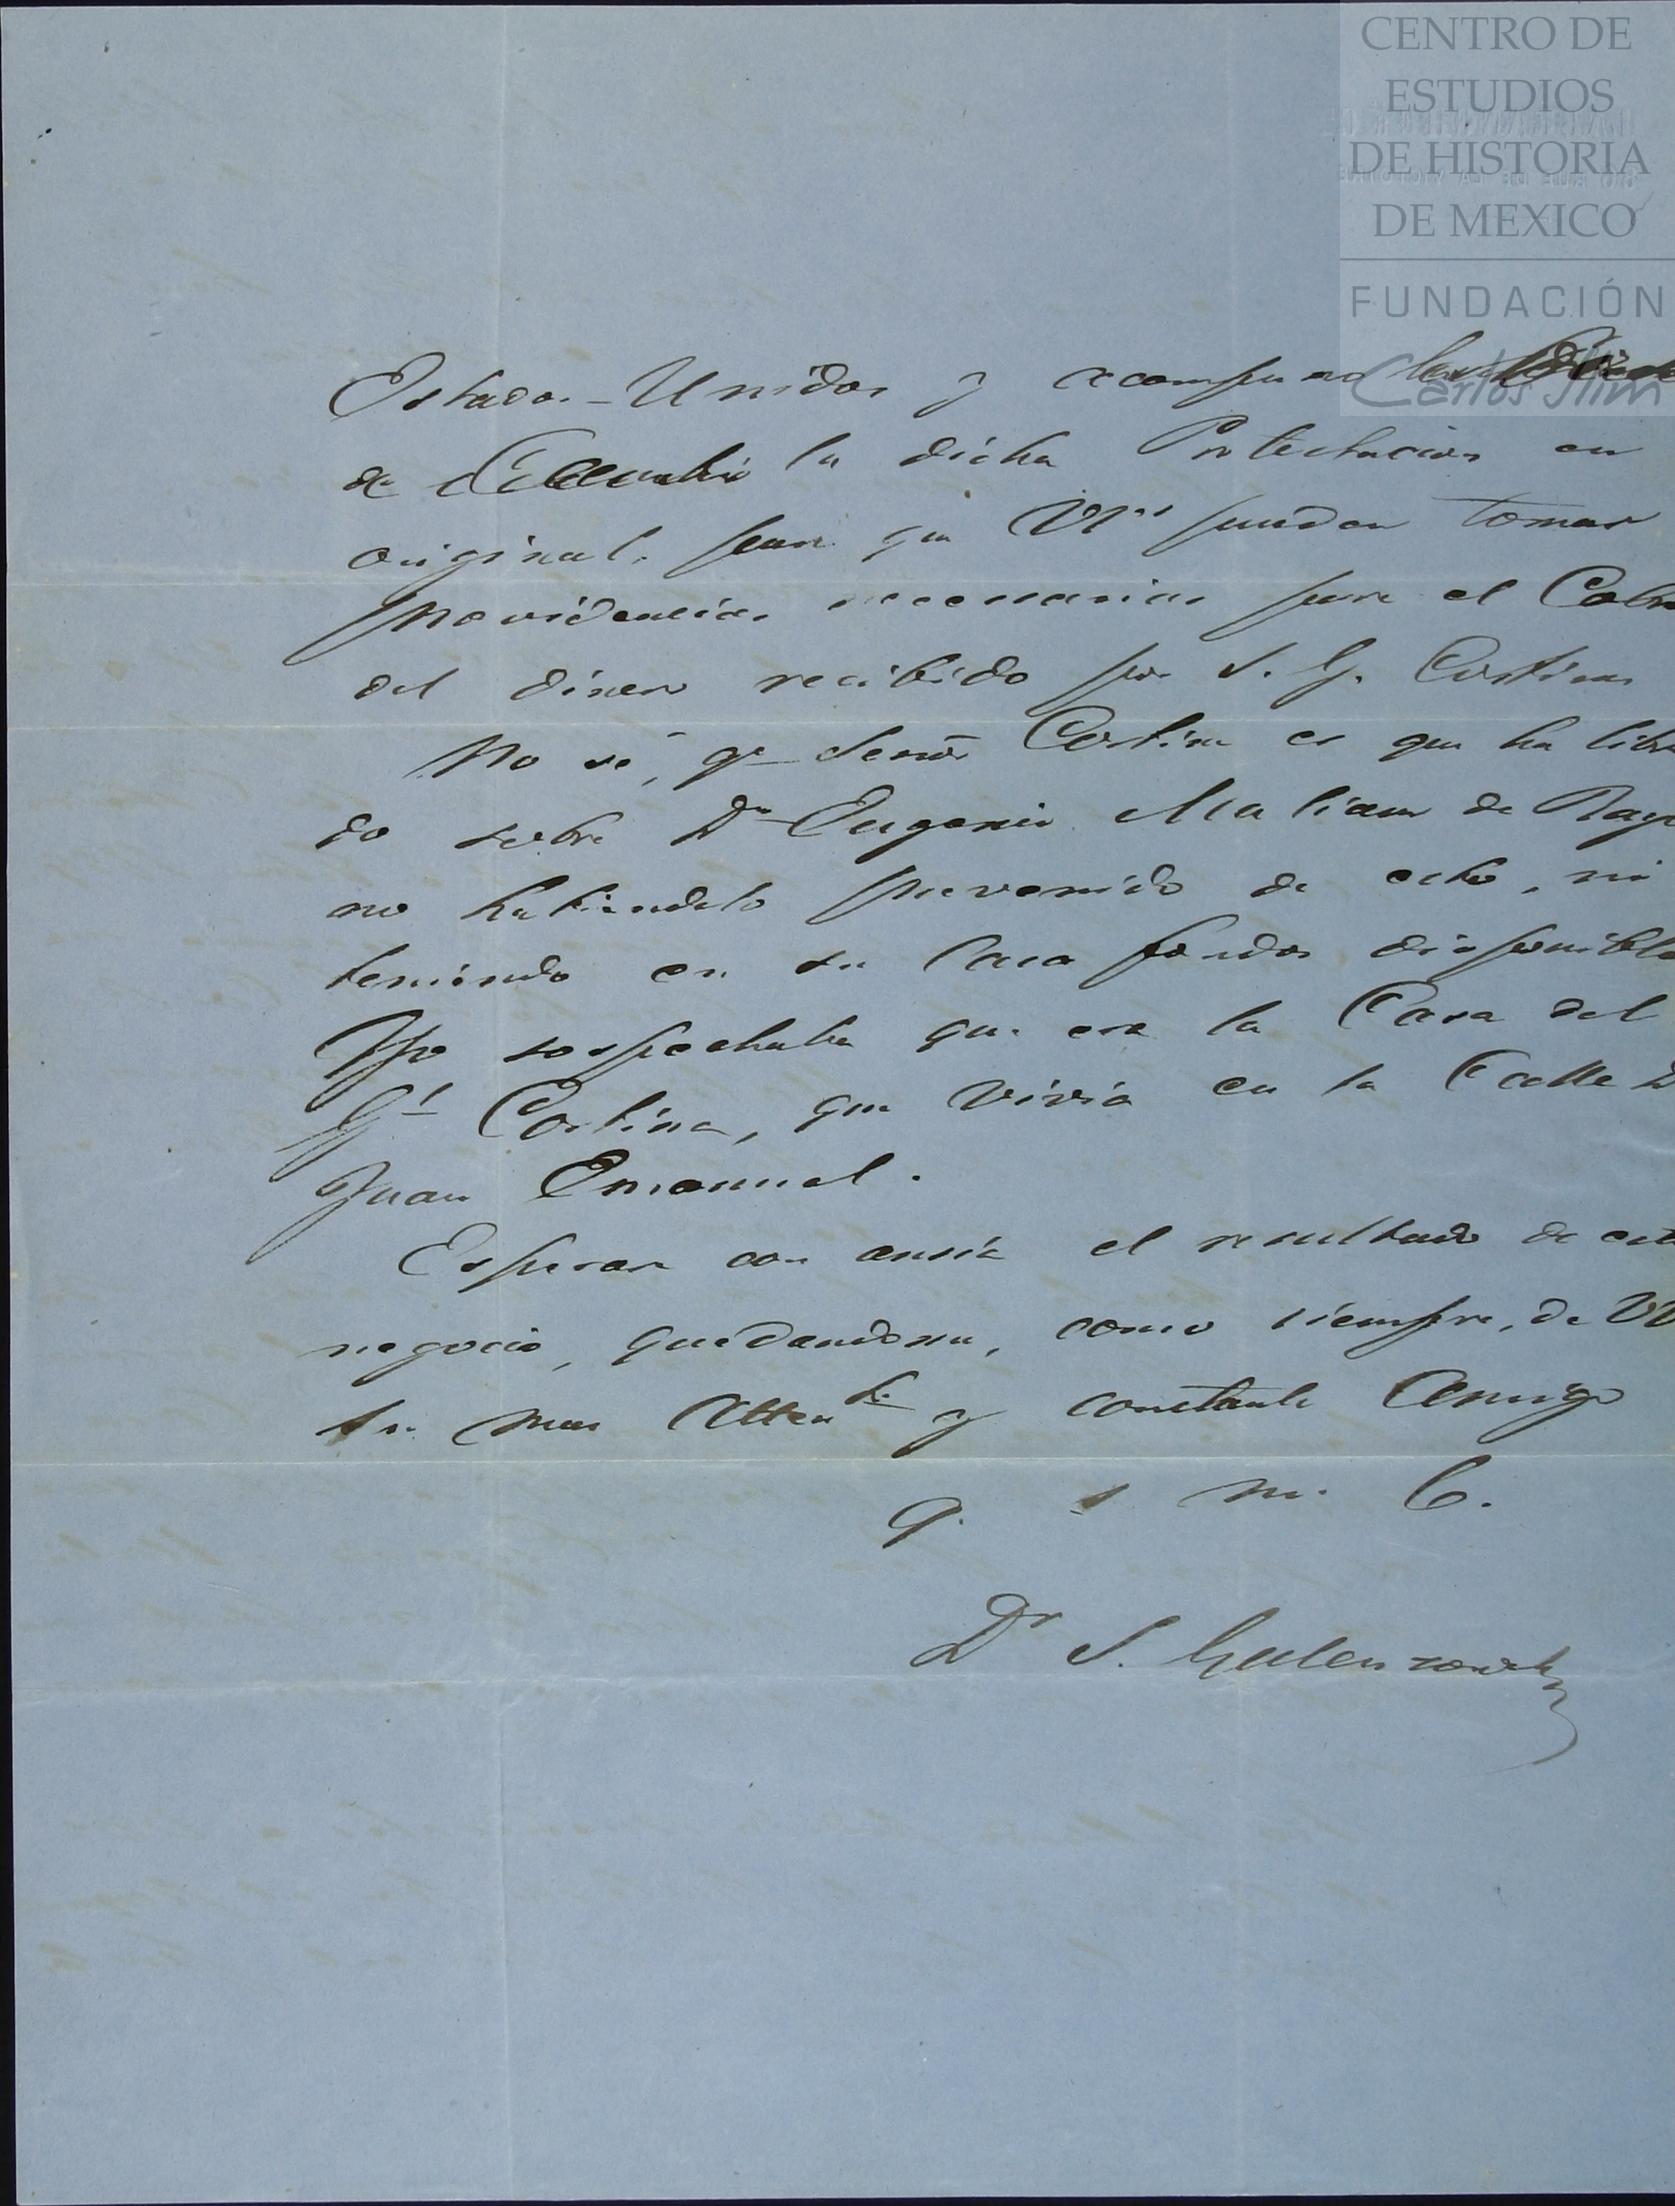 CENTRO DE
ESTUDIOS
DE HISTORIA
DE MEXICO
FUNDACIÓN
Carlos Slim
Estados-Unidos y acompano
de la dicha Protestacion en
original, para que VVs puedan tomar
providencias necessarias para el Cobr
del dinero recibido por S. G. Cortina
No sé, qe Senor Cortina es que ha libra
do sobre Dn Eugenio Maliam de
no habiendolo prevenido de esto, ni
teniendo en su Casa fondos disponible
Yo sospechaba que era la Casa del
Gl Cortina, que vivia en la Calle D
Juan Emanuel.
Esperare con ansia el resultado de est
negocio, quedandome, como siempre, de VV
su mas Atten to y constante Amigo
q. s m. b.
Dr S. Galenzowski